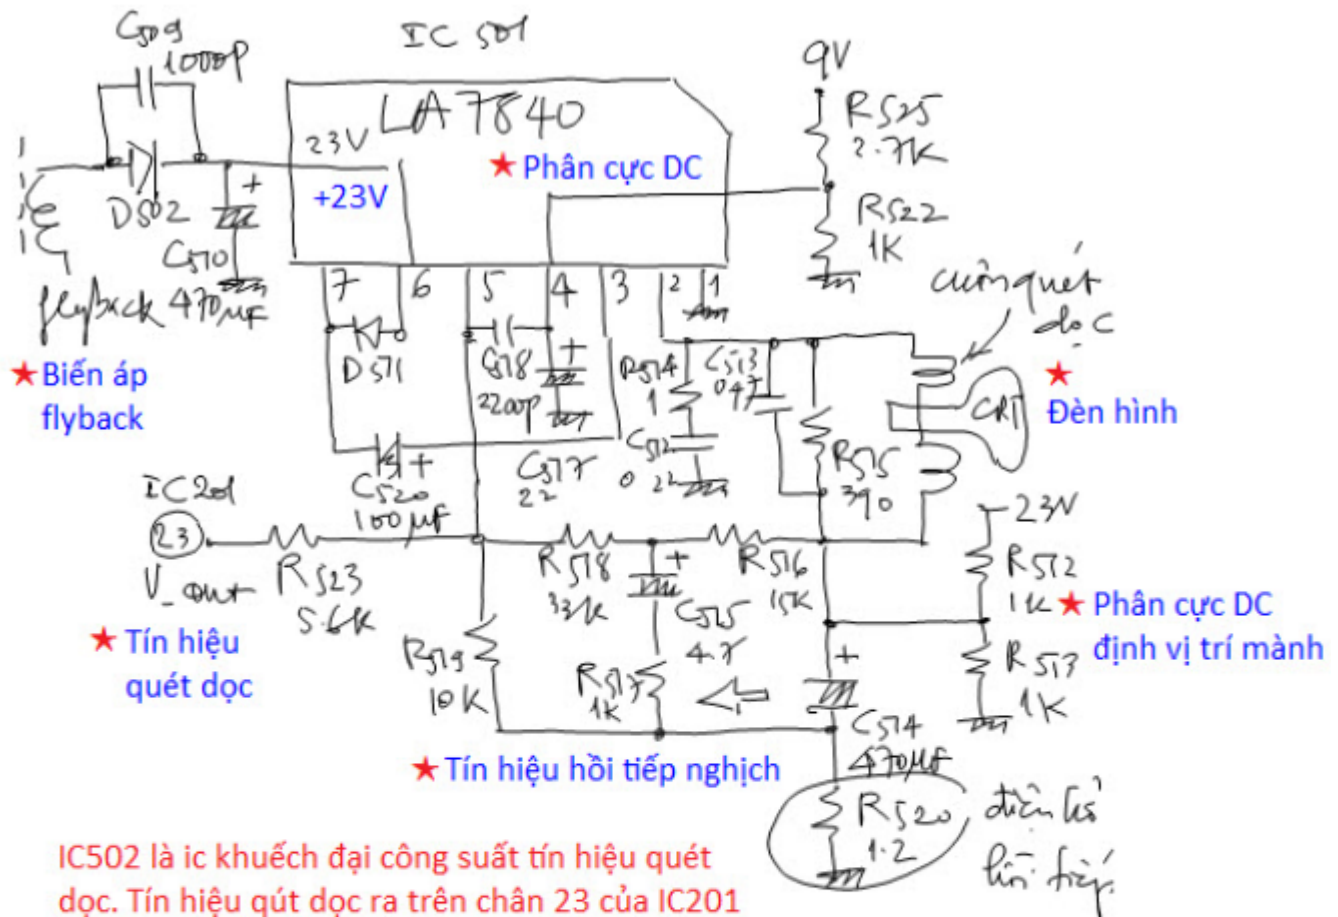 C509
1000P
IC 501
LA7840
23V
+23V
★ Phân cực DC
9V
R525
2.7K
R522
1K
D502
C510
470μF
flyback
★ Biến áp
flyback
7 6 5 4 3 2 1
D571
C518
2200p
R514
1
C513
047
cuộn quét
dọc
★
Đèn hình
CRT
C512
0 22
R515
390
C517
22
C520
100μF
IC201
23
V_out
R523
5.6K
★ Tín hiệu
quét dọc
R518
33K
R516
15K
C515
4.7
R519
10K
R517
1K
23V
R512
1K
★ Phân cực DC
định vị trí mành
R513
1K
C514
470μF
★ Tín hiệu hồi tiếp nghịch
R520
1.2
điện trở
hồi tiếp
IC502 là ic khuếch đại công suất tín hiệu quét
dọc. Tín hiệu qút dọc ra trên chân 23 của IC201